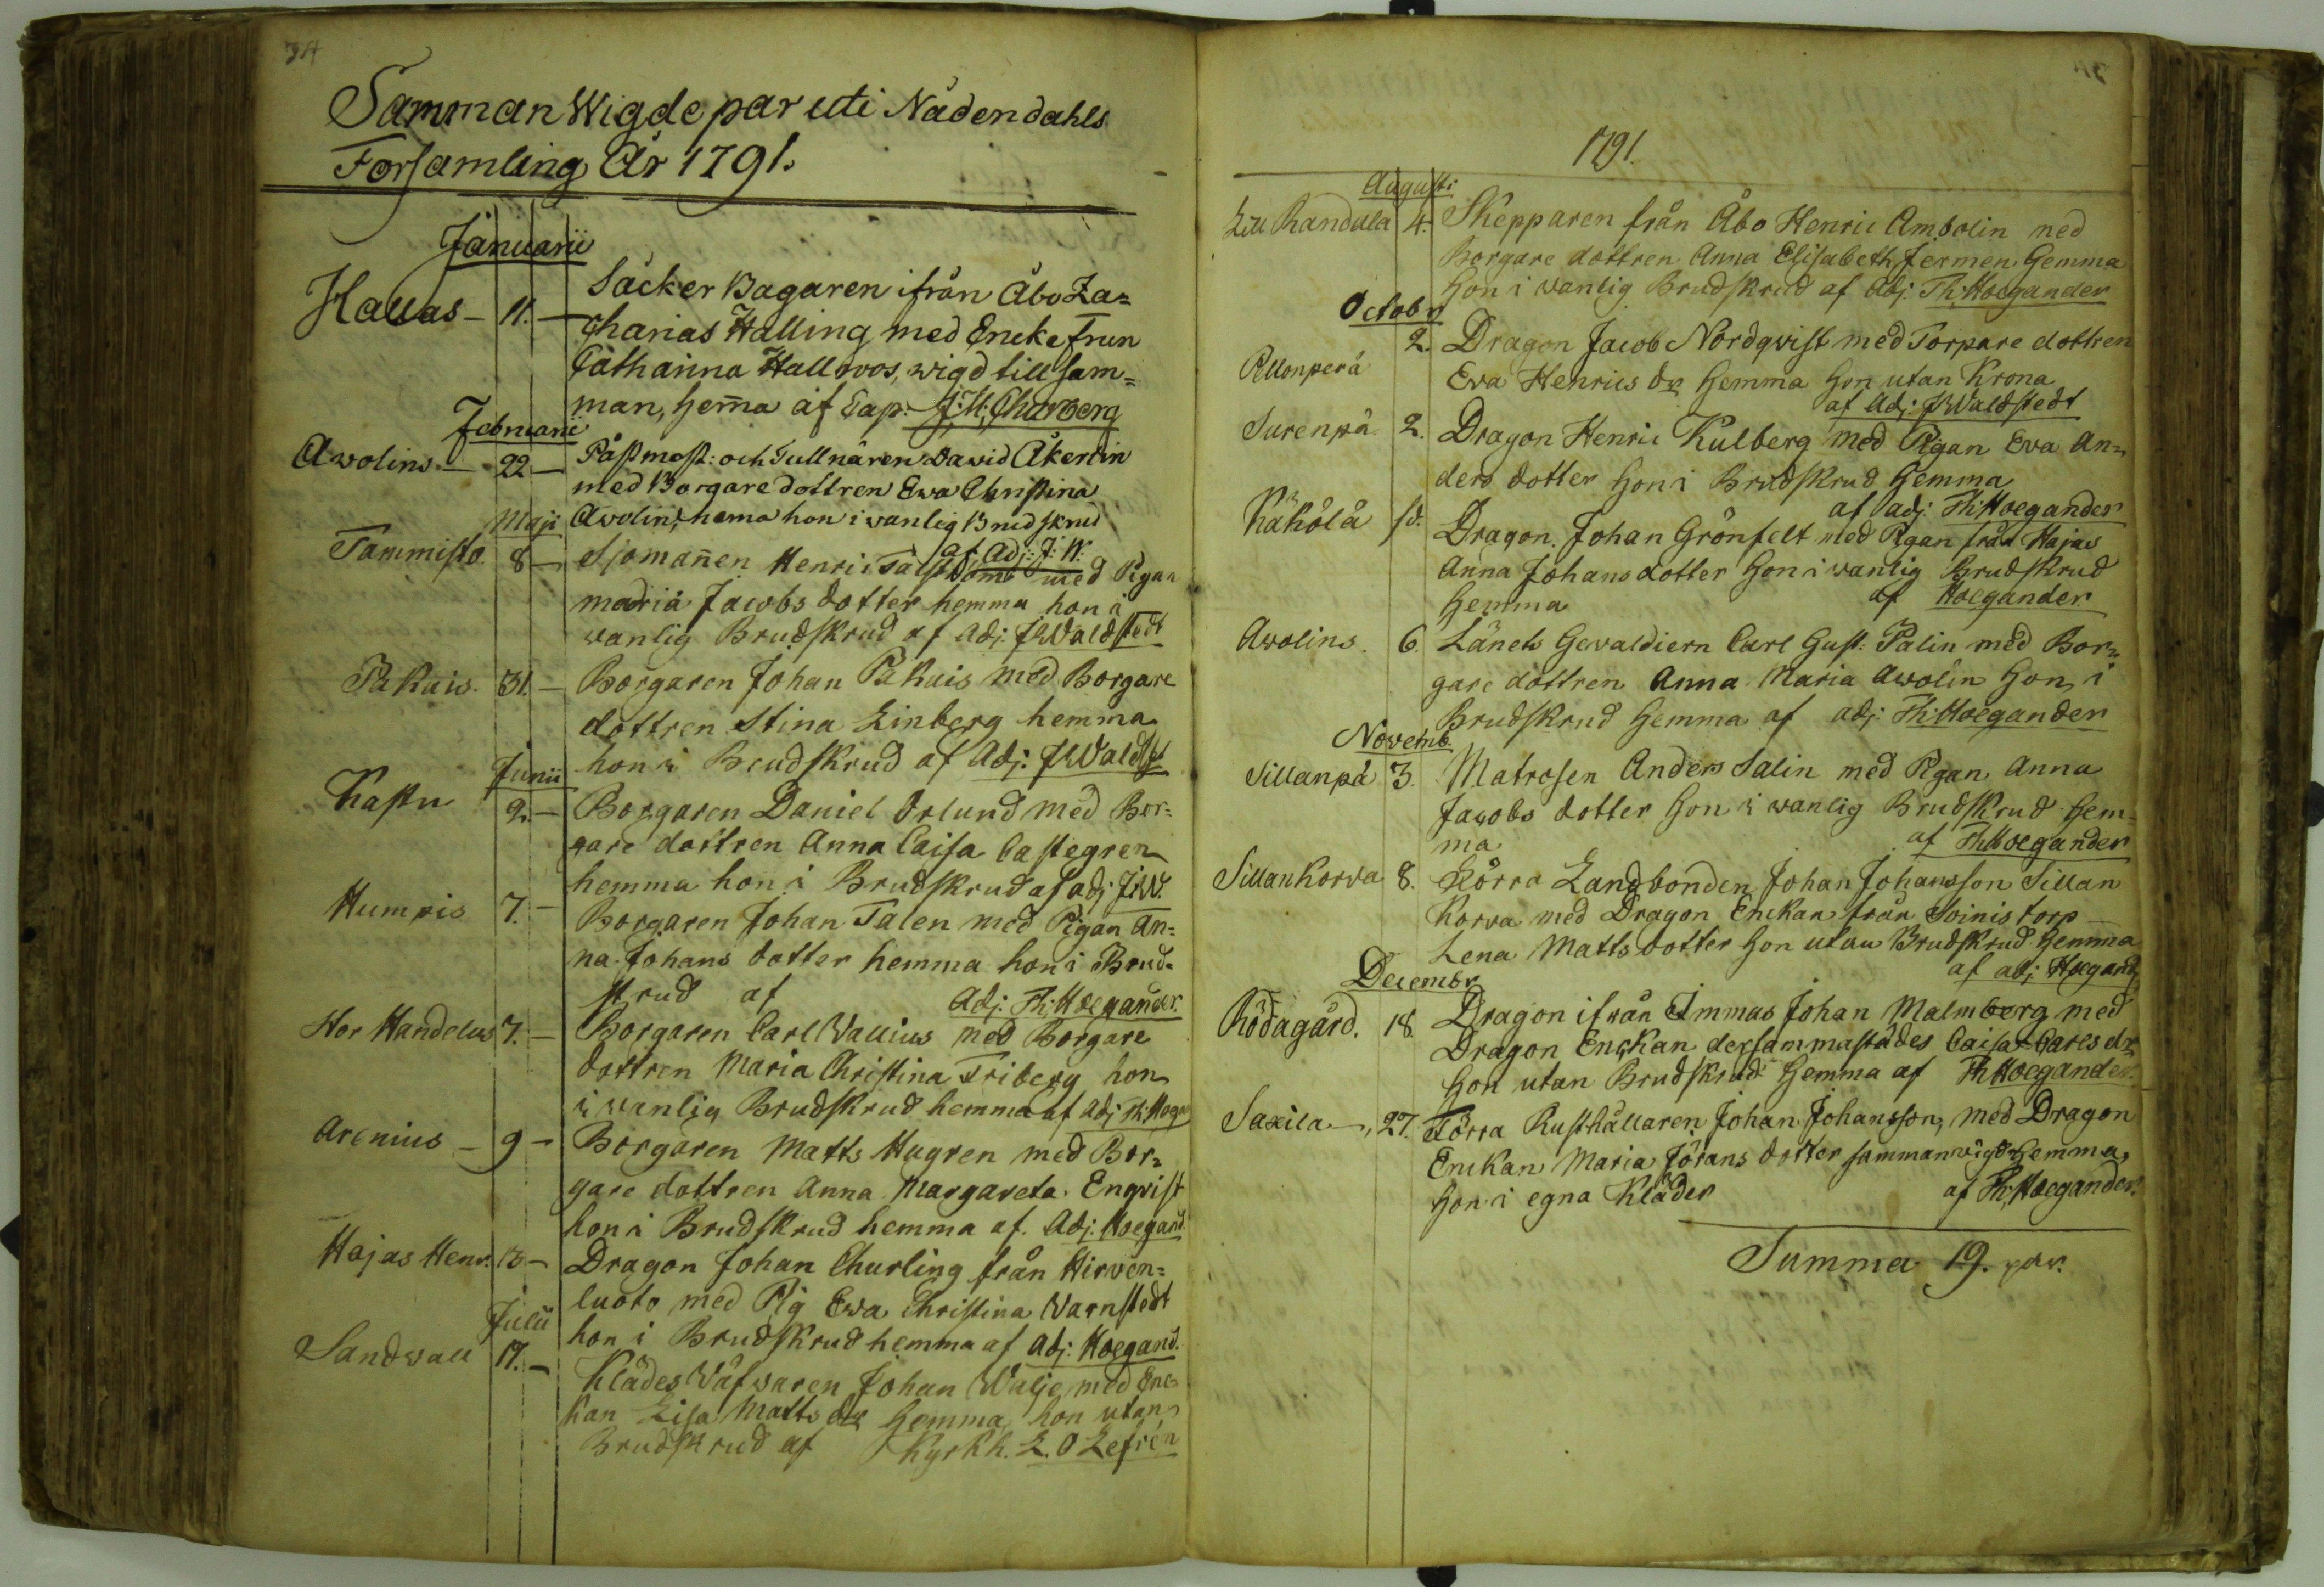 34
Samman Wigde par uti Nådendahls
Forsamling År 1791.
Januarii
Hallas - 11. - Säcker Bagaren ifrån Åbo Za=
charias Halling med Encke frun
Catharina Hallovos, wigd till sam=
man, hem̄a af Cap: J: H: Churberg
Februarii
Awolins - 22 - Påstmäst: och Tullnären Dawid Åkerlin
med Borgare dottren Ewa Christina
Awolin, hema hon i vanlig Brudskrud
af Adj: J: W:
Maji
Tammisto. 8 - Sjöman̄en Henric med Pigan
maria Jacobs dotter hemma hon i
vanlig Brudskrud af Adj: J W Waldstedt
Pakais. 31. - Borgaren Johan Pakais med Borgare
dottren Stina Linberg hemma
hon i Brudskrud af Adj: J W Waldst
Junii
Kastu 2. - Borgaren Daniel Orlund med Bor=
gare dottren Anna Caisa Castegren
hemma hon i Brudskrud af adj J: W.
Humpis 7. - Borgaren Johan Talen med Pigan An=
na Johans dotter hemma hon i Brud=
skrud af Adj: Th: Hoegander.
Hor Handelus 7. - Borgaren Carl Wallius med Borgare
dottren Maria Christina Friberg hon
i vanlig Brudskrud hemma af Adj Th: Hoega
Arenius - 9 - Borgaren Matts Hugren med Bor=
gare dottren Anna Margareta Enqvist
hon i Brudskrud hemma af. Adj: Hoegand.
Hajas Henr. 13 - Dragon Johan Churling från Hirven=
luoto med Pig Ewa Christina Warnstedt
hon i Brudskrud hemma af Adj: Hoegand.
Julii
Sandwall 17. - Klädes Väfvaren Johan Walje med Enc=
kan Lisa Matts dr hemma, hon utan
Brudskrud af Kyrkh. L. O Lefrén
1791.
Augusti
Lill Randala 4. Skepparen från Åbo Henric Ambolin med
Borgare dottren Anna Elisabeth Jermen hemma
hon i wanlig Brudskrud af Adj. Th: Hoegander
Octobr
Pellonperä 2. Dragon Jacob Nordqvist med Torpare dottren
Eva Henrics dr hemma hon utan Krona
af Adj: J W Waldstedt
Surenpä 2. Dragon Henric Kulberg med Pigan Eva An=
ders dotter hon i Brudskrud hemma
af adj: Th: Hoegander
Käkölä sd. Dragon. Johan Grönfelt med Pigan från Hajas
Anna Johans dotter hon i wanlig Brudskrud
hemma af Hoegander
Awolins. 6. Länets Gevaldiern Carl Gust: Palin med Bor=
gare dottren Anna Maria Awolin hon i
Brudskrud hemma af adj: Th: Hoegander
Novemb.
Sillanpä 3. Matrosen Anders Salin med Pigan Anna
Jacobs dotter hon i wanlig Brudskrud hem=
ma af Th Hoegander
Sillankorva 8. Förra Landbonden Johan Johansson Sillan
korva med Dragon Enckan från Soinis torp
Lena Matts dotter hon utan Brudskrud hemma
af adj: Hoegand,
Decembr
Rödagård. 18. Dragon ifrån Immas Johan Malmberg med
Dragon Enckan dersammastädes Caisa Carls dr
hon utan Brudskrud hemma af Th Hoegander.
Saxila -, 27. Förra Rusthållaren Johan Johansson, med Dragon
Enckan Maria Jörans dotter sammanwigd hemma,
hon i egna Kläder af Th: Hoegander.
Summa 19. par.